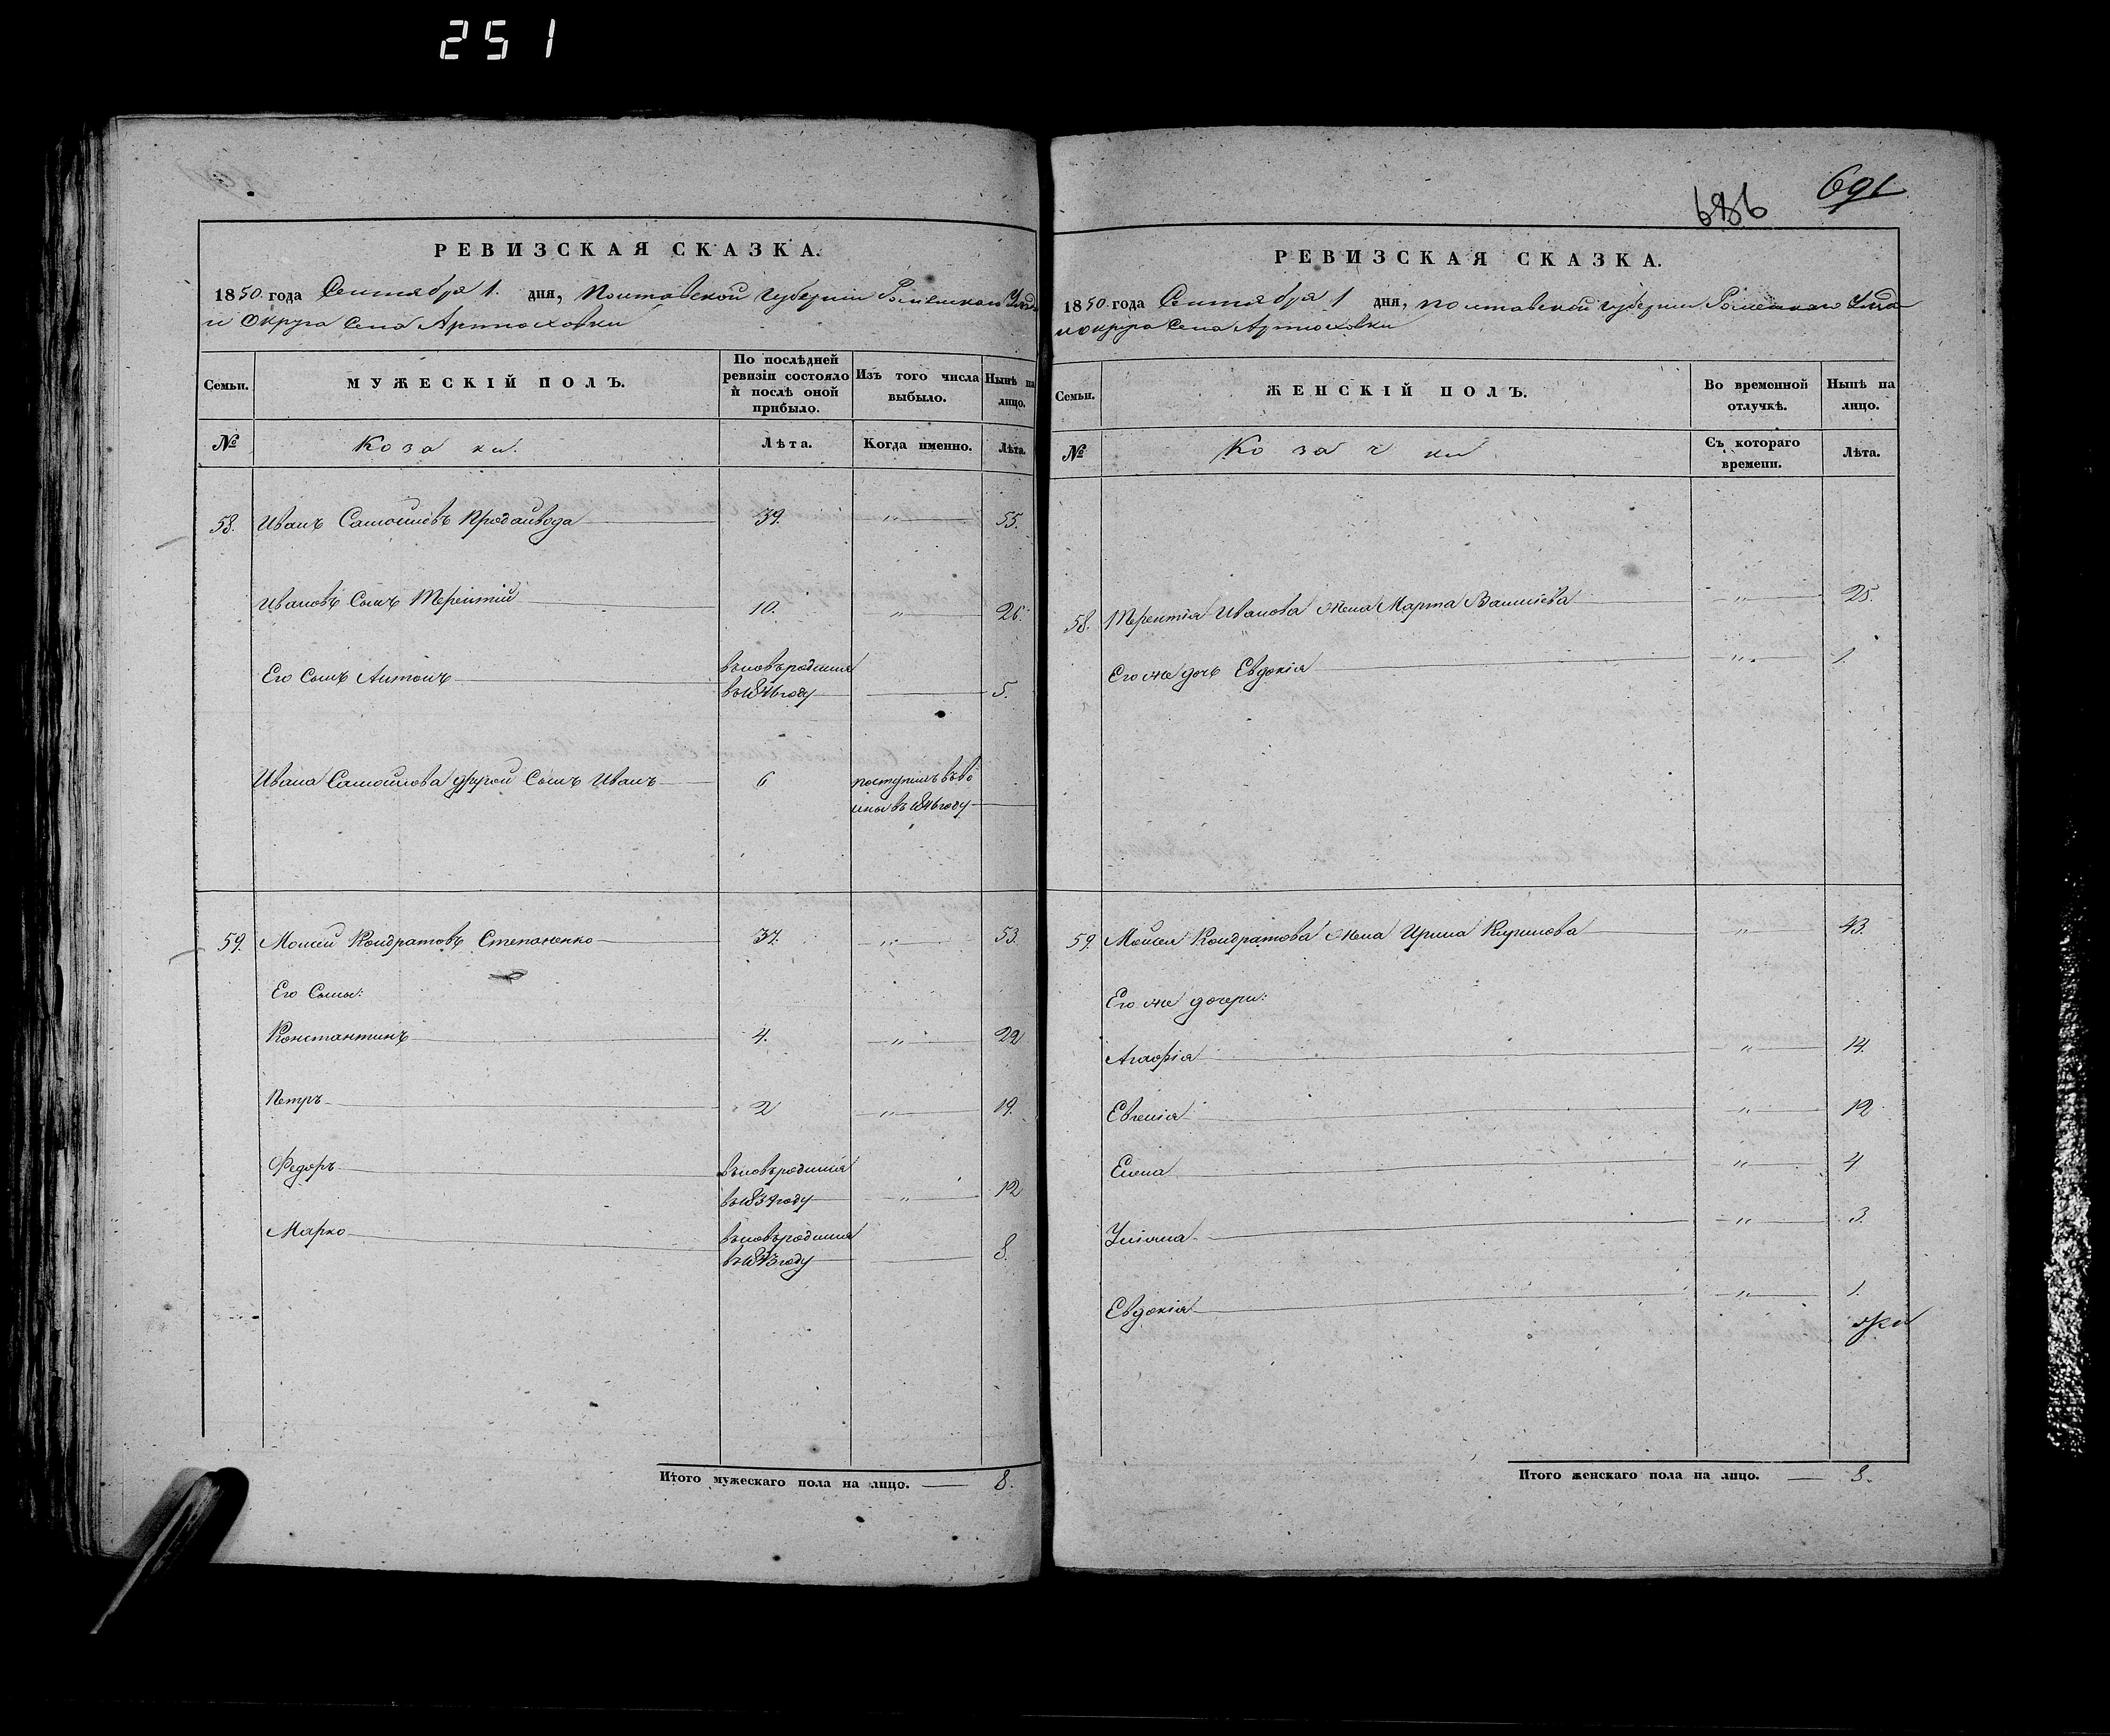 251
РЕВИЗСКАЯ СКАЗКА.
1850 года Сентября 1. дня, Полтавской Губернии Роменскаго Уезда
и Округа Села Артюховки
Семьи.
МУЖЕСКІЙ ПОЛЪ.
По послѣдней ревизіи состояло и послѣ оной прибыло.
Изъ того числа выбыло.
Нынѣ на лицо.
№
Козаки.
Лѣта.
Когда именно.
Лѣта.
58. Иванъ Самойловъ Продайвода 39. " 55.
Ивановъ Сынъ Терентій 10. " 26.
Его Сынъ Антонъ вновьродился
въ 1846 году 5.
Ивана Самойлова другой Сынъ Иванъ 6 поступилъ въ во
ины въ 1846 году
59. Моисей Кондратовъ Степаненко 37. " 53.
Его Сыны:
Константинъ 4. " 22
Петръ 2 " 19.
Федоръ вновьродился
въ 1839 году " 12
Марко вновьродился
въ 1843 году 8.
Итого мужескаго пола на лицо. 8.
686 691
РЕВИЗСКАЯ СКАЗКА.
1850 года Сентября 1 дня, Полтавской Губернии Роменскаго Уезда
и округа Села Артюховки
Семьи.
ЖЕНСКІЙ ПОЛЪ.
Во временной отлучкѣ.
Нынѣ на лицо.
№
Козачки
Съ котораго времени.
Лѣта.
58. Терентія Иванова жена Марта Василіева " 25.
Его же дочь Евдокія " 1.
59. Моисея Кондратова жена Ирина Кирилова " 43.
Его же дочери:
Агафія " 14.
Евгенія " 12
Елена " 4
Уліяна " 3.
Евдокія " 1.
Итого женскаго пола на лицо. 8.